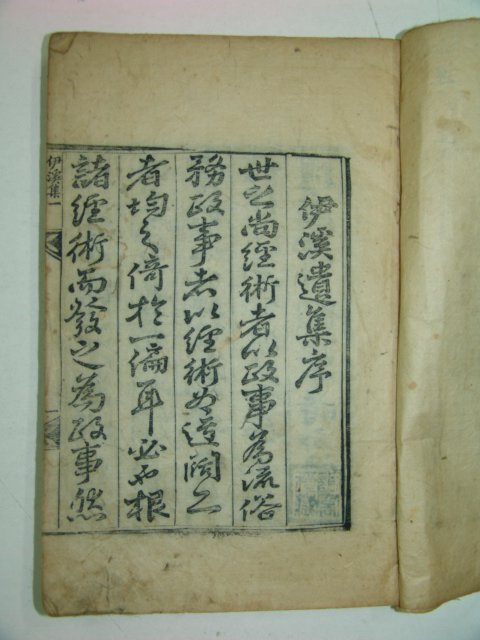 伊溪遺集序
世之尚經術者以政事為流俗
務政事者以經術為迂闊之
者均之倚於一偏耳必也根
諸經術而發之為政事然
伊溪集